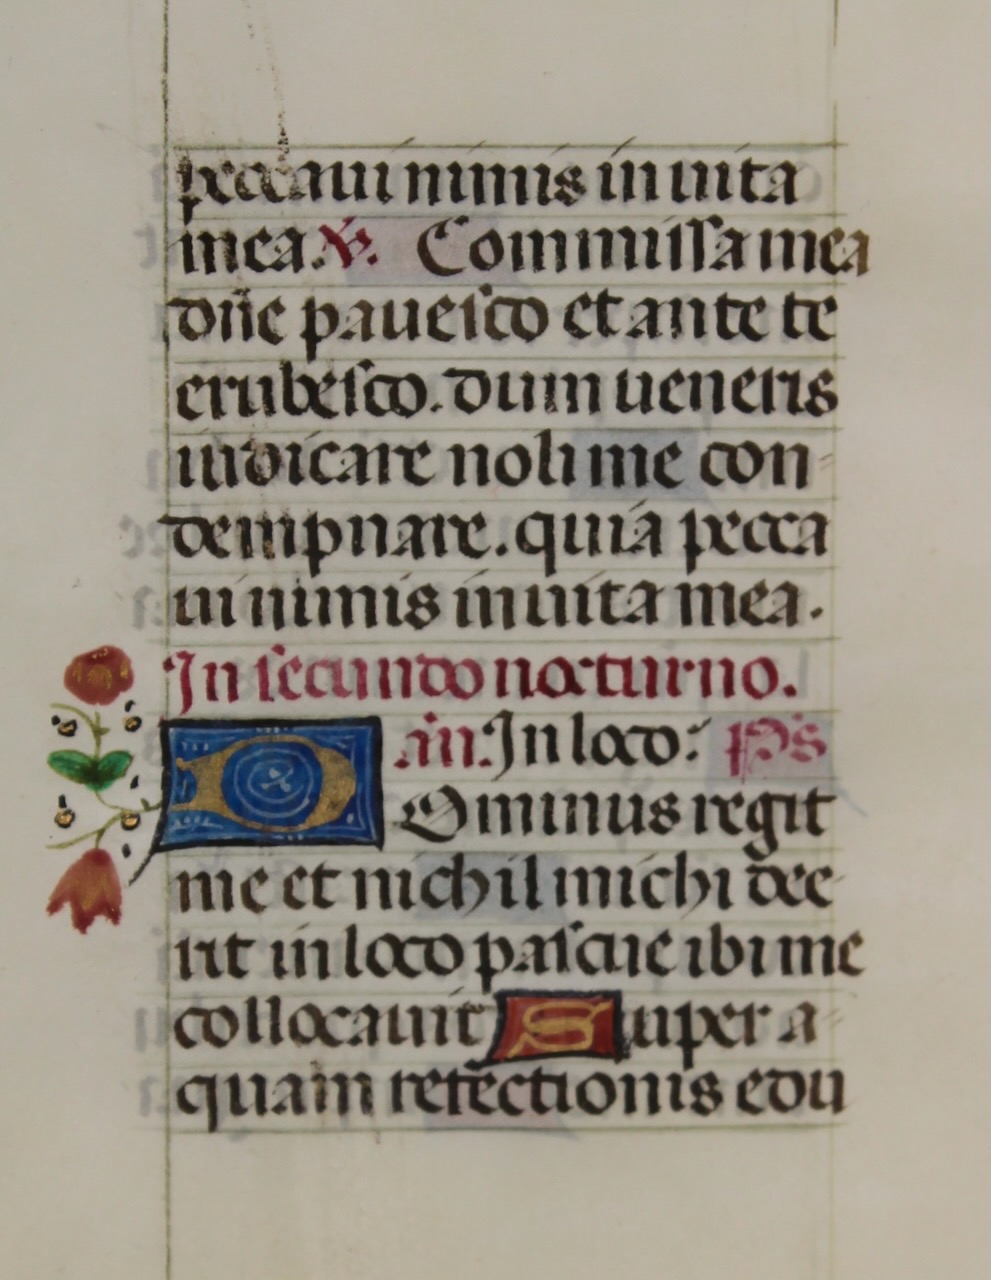 peccaui nimis in uita
mea. ℣. Commissa mea
dn̄e pauesco et ante te
erubesco. dum ueneris
iudicare noli me con
dempnare. quia pecca
ui nimis in uita mea.
In secundo nocturno.
añ. In loco: Ps
Dominus regit
me et nichil michi dee
rit in loco pascue ibi me
collocauit Super a
quam refectionis edu